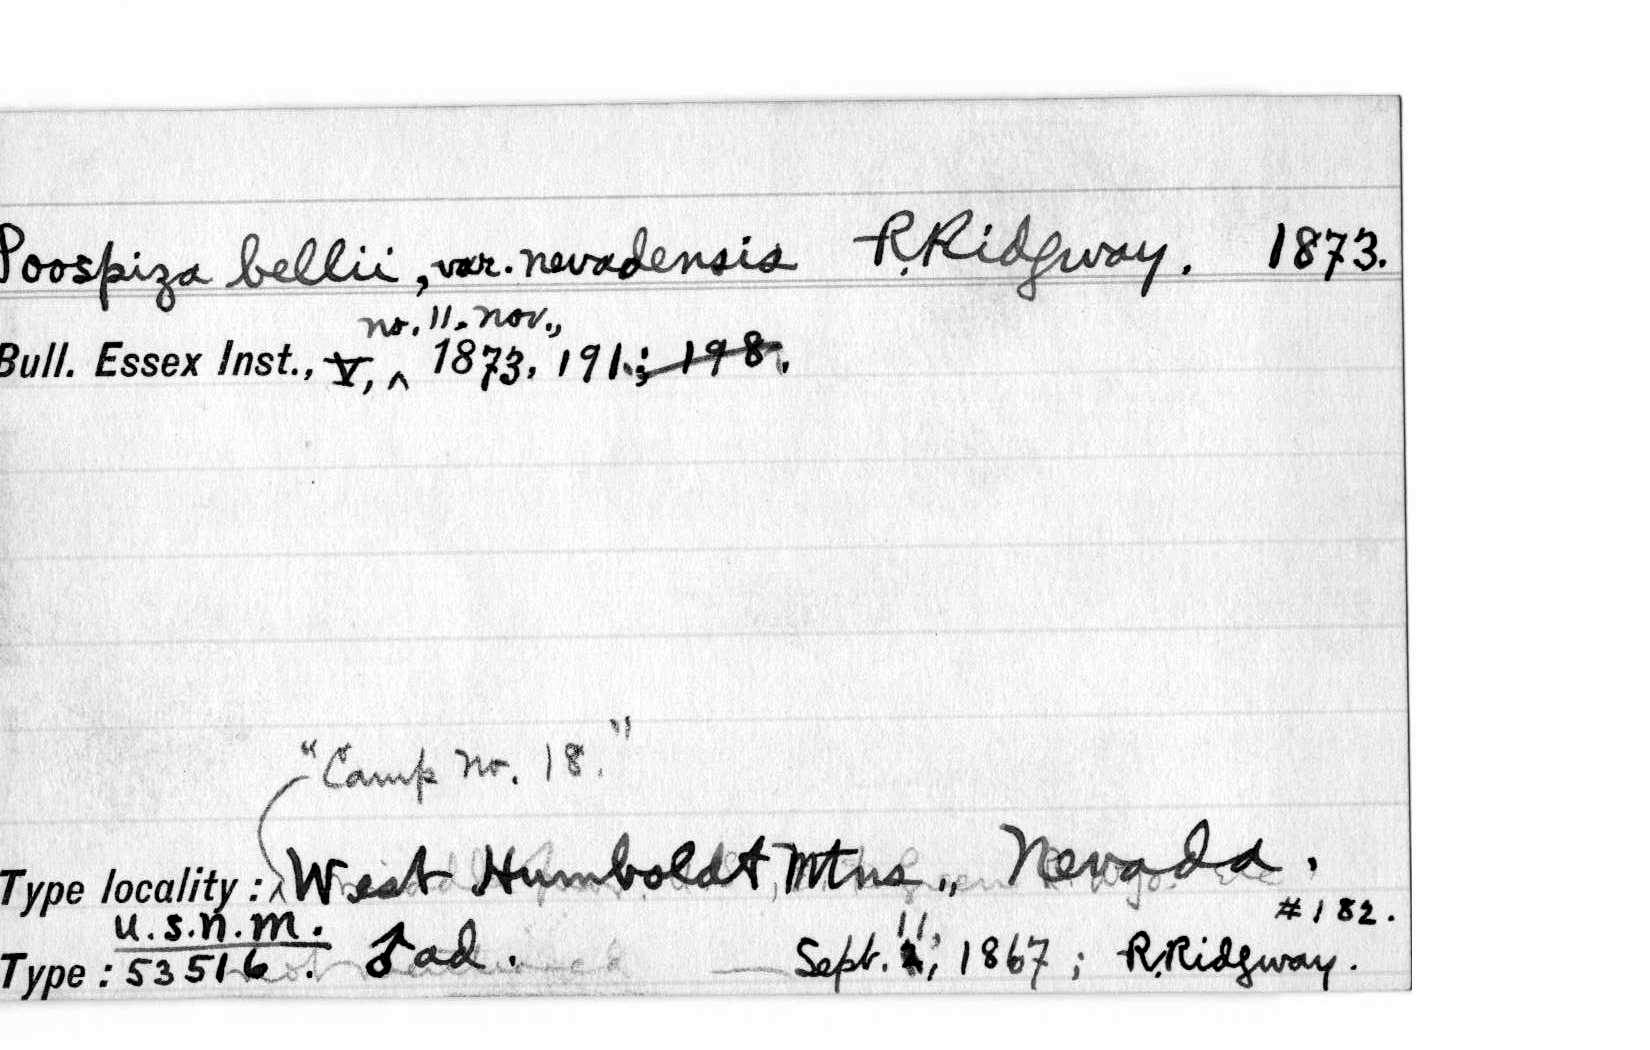 Poospiza bellii, var. nevadensis R. Ridgway. 1873.
no. 11. Nov.,
Bull. Essex Inst., V, ^ 1873, 191; 198.
"Camp No. 18."
Type locality: ^ West Humboldt Mtns., Nevada.
#182.
U.S.N.M.
11,
Type: 53516. ♂ ad. Sept. , 1867; R. Ridgway.